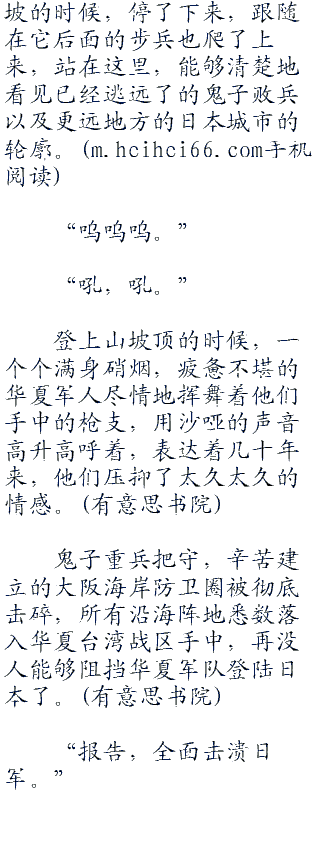 坡的时候，停了下来，跟随
在它后面的步兵也爬了上
来，站在这里，能够清楚地
看见已经逃远了的鬼子败兵
以及更远地方的日本城市的
轮廓。(m.hcihci66.com手机
阅读)
“呜呜呜。”
“吼，吼。”
登上山坡顶的时候，一
个个满身硝烟，疲惫不堪的
华夏军人尽情地挥舞着他们
手中的枪支，用沙哑的声音
高升高呼着，表达着几十年
来，他们压抑了太久太久的
情感。(有意思书院)
鬼子重兵把守，辛苦建
立的大阪海岸防卫圈被彻底
击碎，所有沿海阵地悉数落
入华夏台湾战区手中，再没
人能够阻挡华夏军队登陆日
本了。(有意思书院)
“报告，全面击溃日
军。”